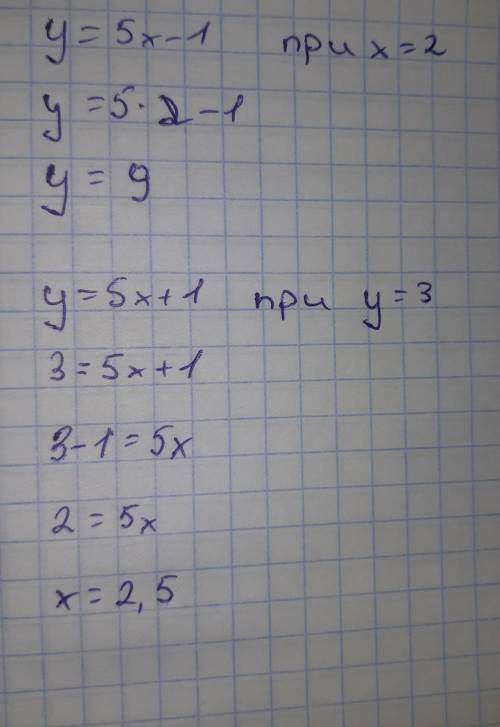 y = 5x - 1 при x = 2
y = 5 · 2 - 1
y = 9
y = 5x + 1 при y = 3
3 = 5x + 1
3 - 1 = 5x
2 = 5x
x = 2,5